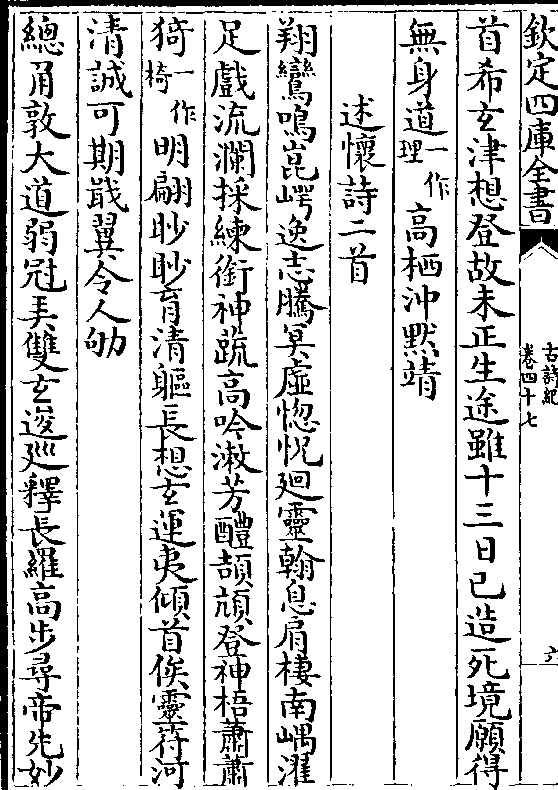 欽定四庫全書
古詩紀
卷四十七
六
首希玄津想登故未正生途雖十三日已造死境願得
無身道一作理高栖沖默靖
述懷詩二首
翔鸞鳴崑崿逸志騰冥虛惚怳迴靈翰息肩棲南嵎濯
足戲流瀾採練銜神蔬高吟漱芳醴頡頏登神梧蕭蕭
猗一作椅明翩眇眇育清軀長想玄運夷傾首俟靈符河
清誠可期戢翼令人劬
總角敦大道弱冠弄雙玄逡巡釋長羅高步尋帝先妙